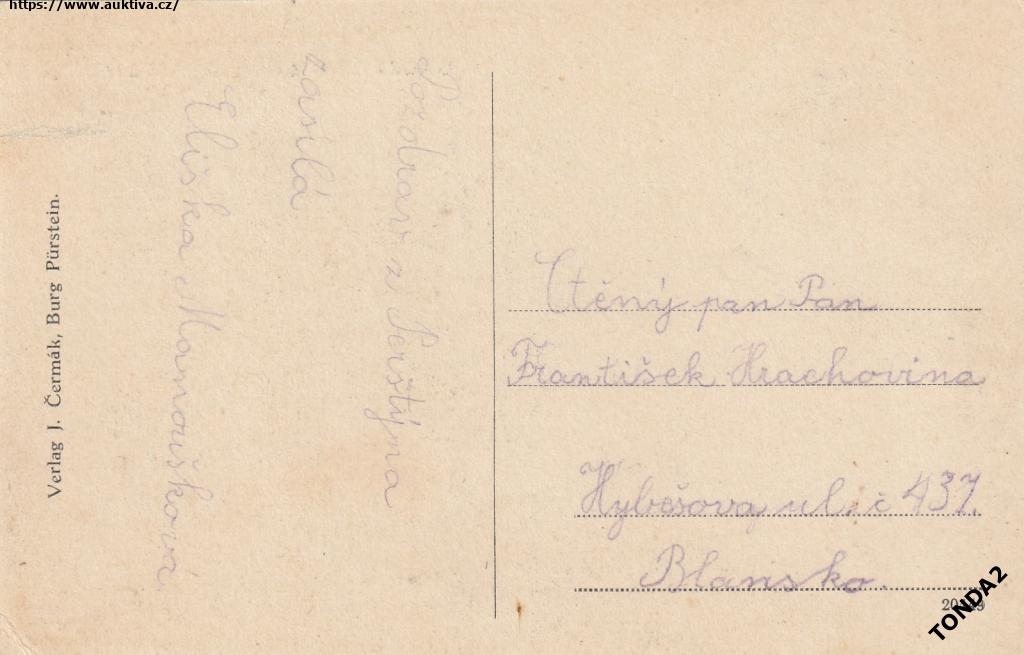 https://www.auktiva.cz/
Pozdrav z Perštýna
zasílá
Eliška Mamoušková
Verlag J. Čermák, Burg Pürstein.
Ctěný pan Pan
František Hrachovina
Hybešova ul. č 437.
Blansko.
TONDA2